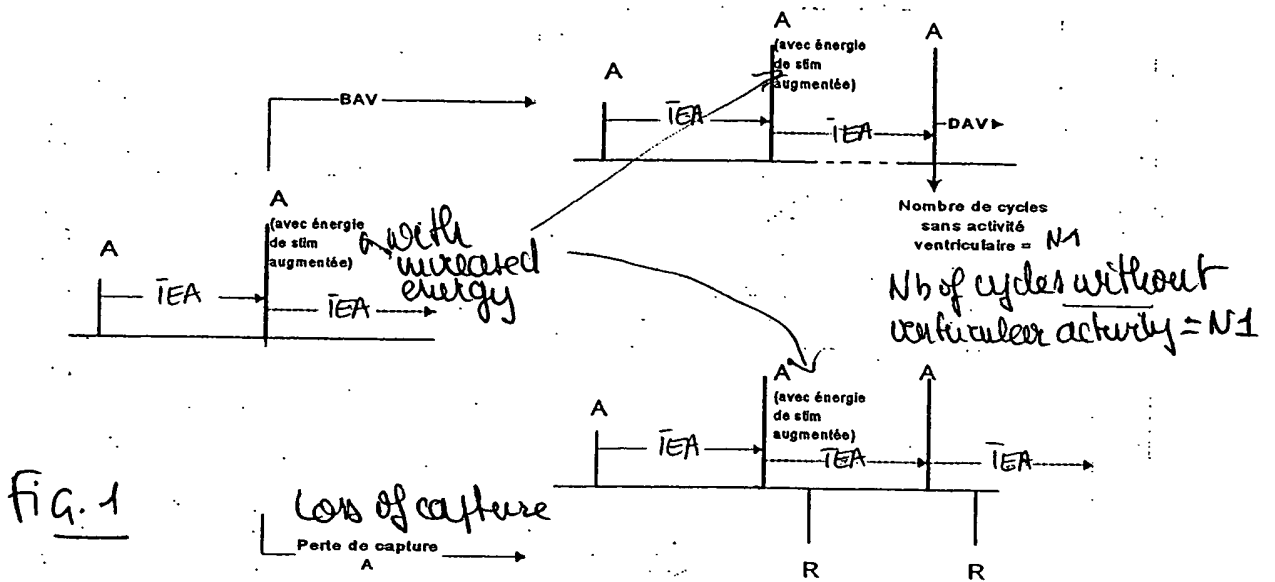 A
(avec énergie
de stim
augmentée)
A
A
TEA
TEA
DAV
BAV
Nombre de cycles
sans activité
ventriculaire = N1
Nb of cycles without
ventricular activity = N1
A
(avec énergie
de stim
augmentée)
with
increased
energy
A
TEA
TEA
A
(avec énergie
de stim
augmentée)
A
A
TEA
TEA
TEA
R
R
FIG. 1
Loss of capture
Perte de capture
A